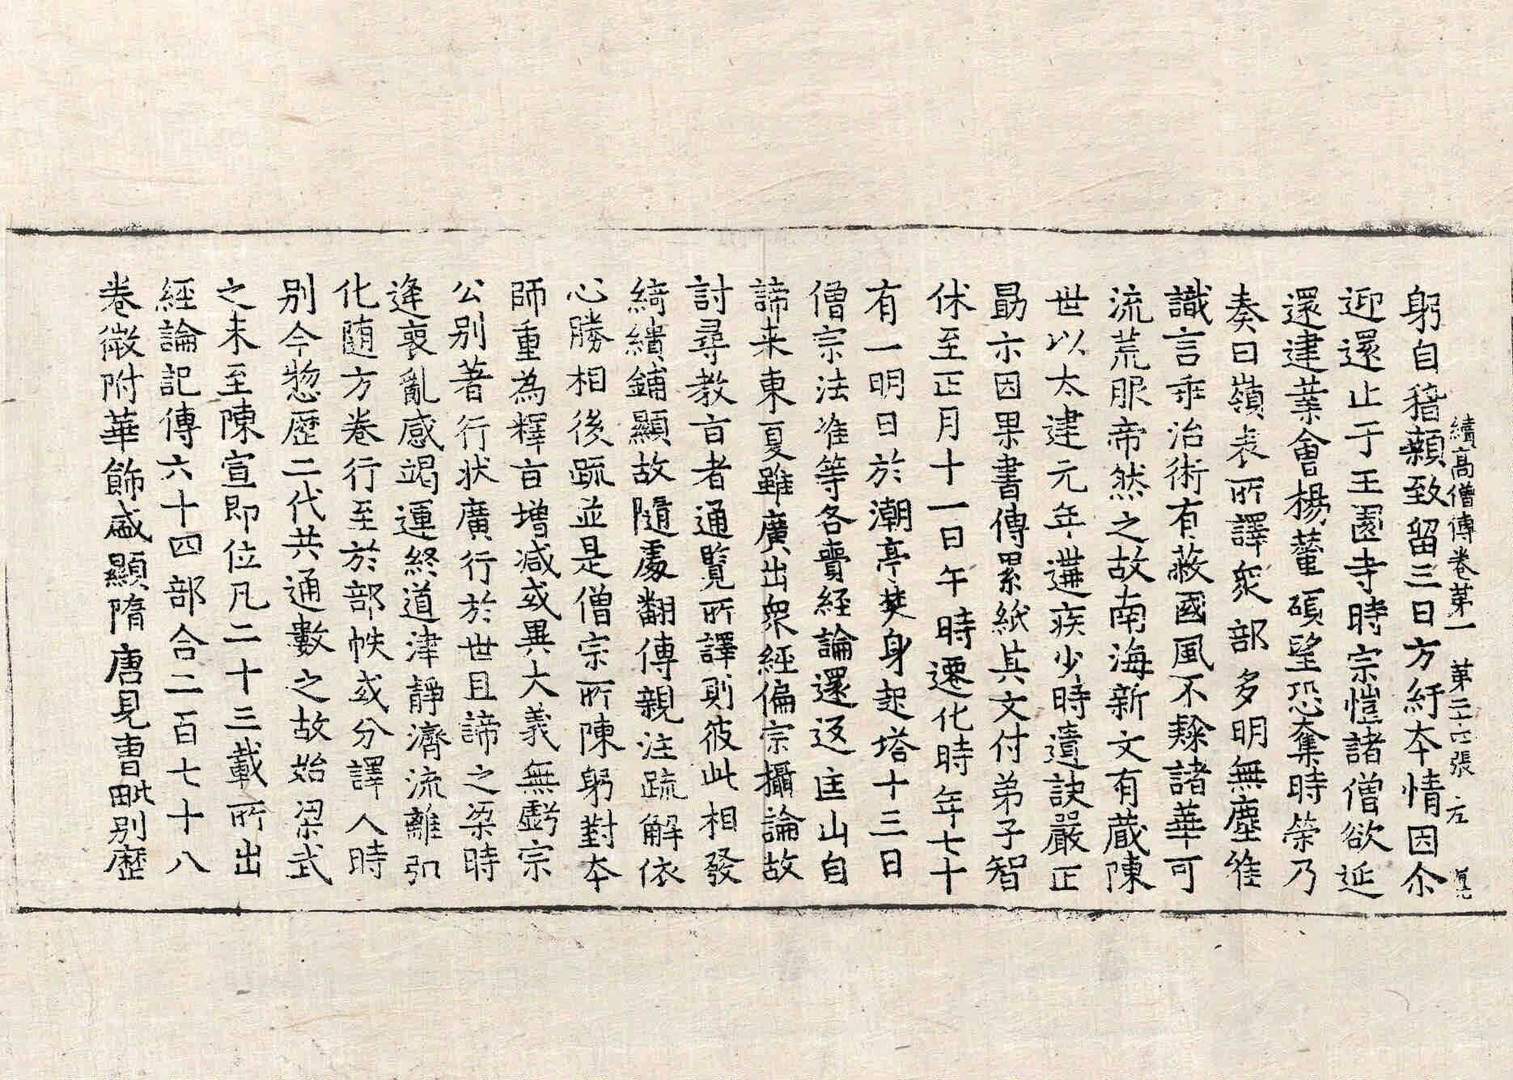 續高僧傳卷第一 第二六張 左
躬自稽顙致留三日方紆夲情因尒
迎還止于王園寺時宗愷諸僧欲延
還建業會楊輦碩望恐奪時榮乃
奏曰嶺表所譯衆部多明無塵唯
識言乖治術有蔽國風不隸諸華可
流荒服帝然之故南海新文有蔵陳
世以太建元年遘疾少時遺訣嚴正
勗示因果書傳累紙其文付弟子智
休至正月十一日午時遷化時年七十
有一明日於潮亭焚身起塔十三日
僧宗法准等各賷經論還返匡山自
諦来東夏雖廣出衆經偏宗攝論故
討尋教㫖者通覧所譯則彼此相發
綺繢鋪顯故隨處翻傳親注疏解依
心勝相後疏並是僧宗所陳躬對夲
師重為釋㫖增减或異大義無虧宗
公別著行状廣行於世且諦之梁時
逢喪亂感竭運終道津靜濟流離弘
化随方卷行至於部帙或分譯人時
別今惣歷二代共通數之故始梁武
之末至陳宣即位凡二十三載所出
經論記傳六十四部合二百七十八
卷微附華飾盛顯隋唐見曺毗別歷